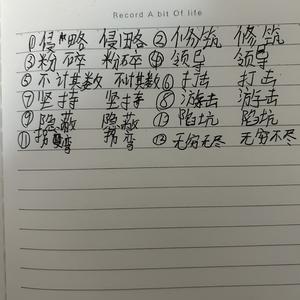 Record A bit Of life
①侵略 侵略 ②修筑 修筑
③粉碎 粉碎 ④领导 领导
⑤不计其数 不计其数 ⑥打击 打击
⑦坚持 坚持 ⑧游击 游击
⑨隐蔽 隐蔽 ⑬陷坑 陷坑
⑪拐弯 拐弯 ⑫无穷无尽 无穷不尽